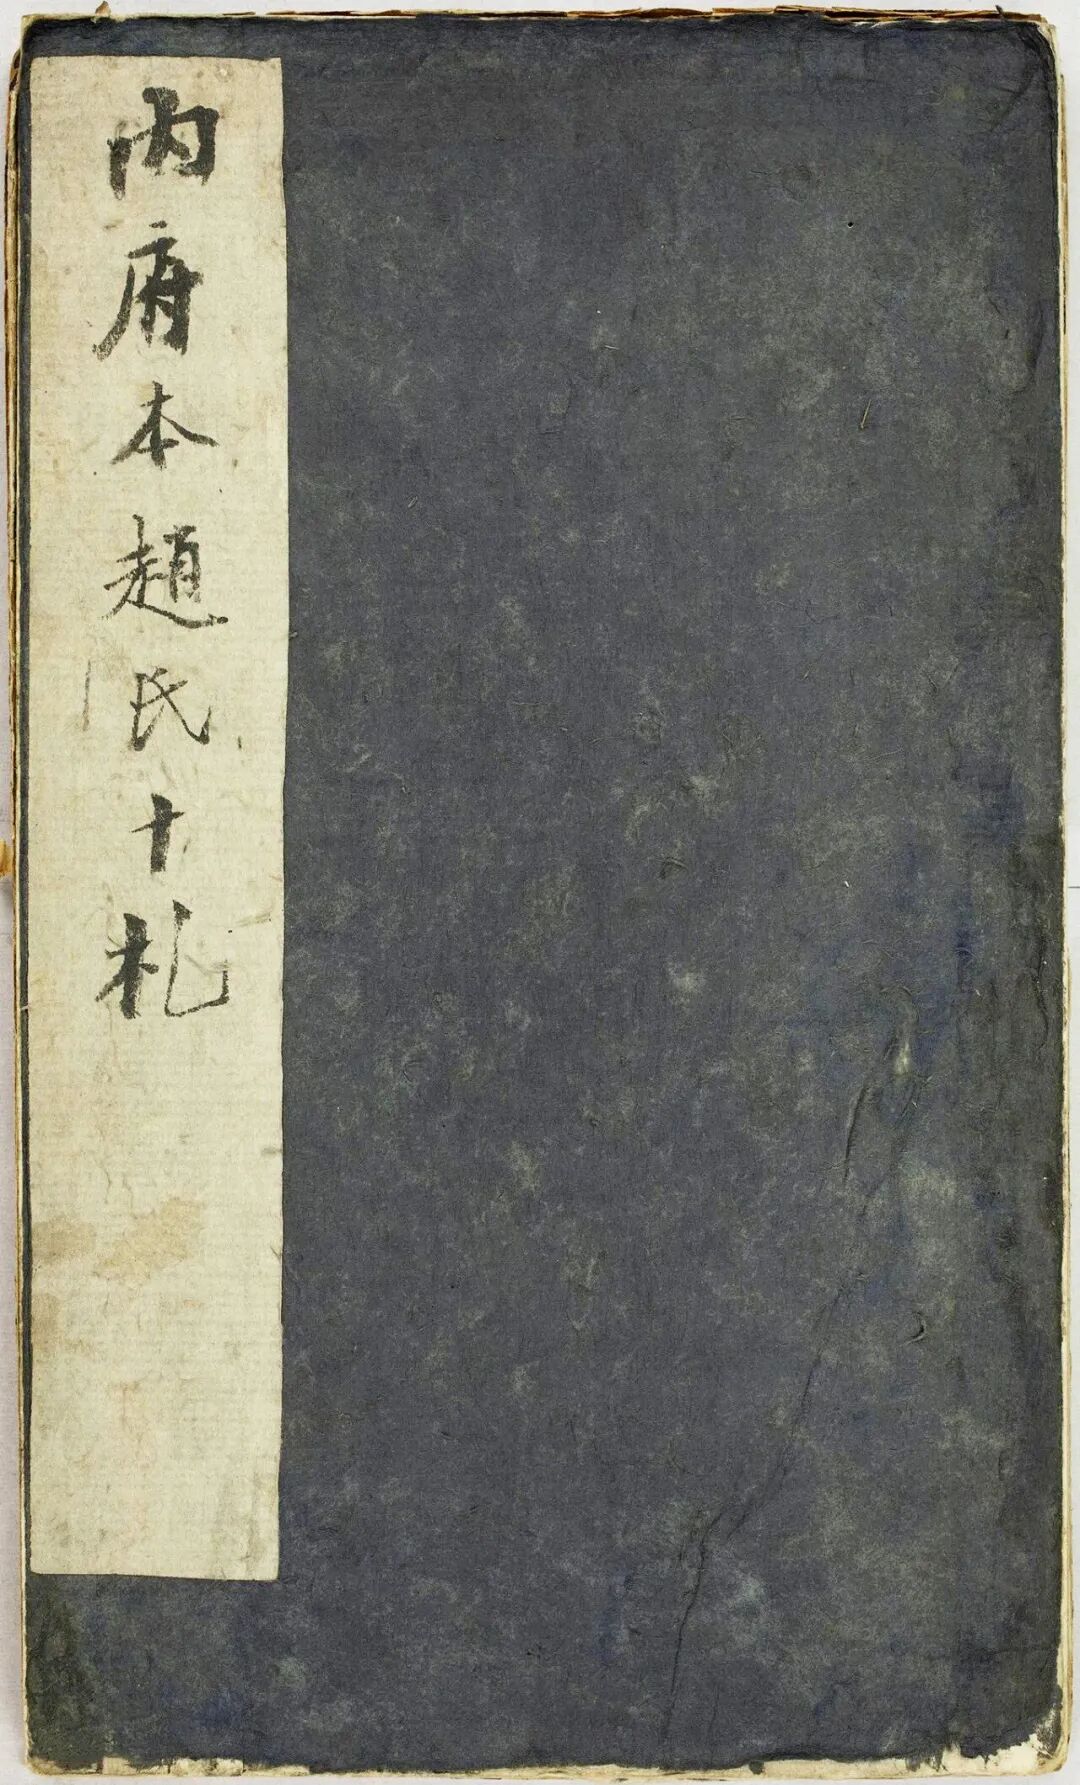 內府本趙氏十札